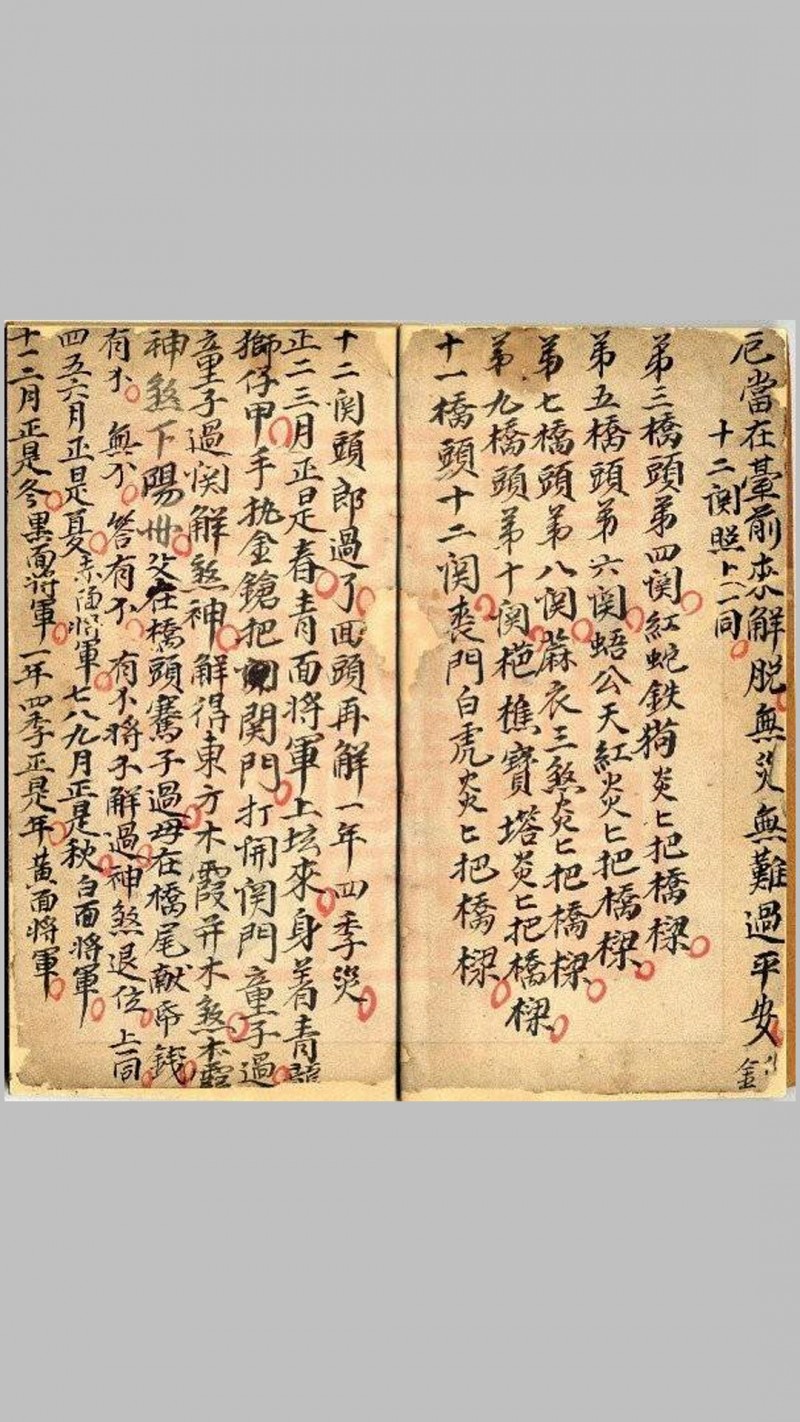 厄當在臺前來解脫無災無難過平安
金
十二関照上一同
第三橋頭第四関紅蛇鉄狗炎匕把橋樑
第五橋頭第六関蜈公天紅炎匕把橋樑
第七橋頭第八関蔴衣三煞炎匕把橋樑
第九橋頭第十関樵寶塔炎匕把橋樑
十一橋頭十二関喪門白虎炎匕把橋樑
十二関頭郎過了面頭再解一年四季災
正二三月正是春青面将軍上坛來身着青
獅仔甲手执金鎗把関門打開関門童子過
童子過関解煞神解得東方木霞并木煞
神煞下陽州父在橋頭騫子過母在橋尾献帋錢
有不無不答有不有不將不解過神煞退位上同
四五六月正是夏赤面將軍七八九月正是秋白面將軍
十一二月正是冬黒面將軍一年四季正是年黄面將軍